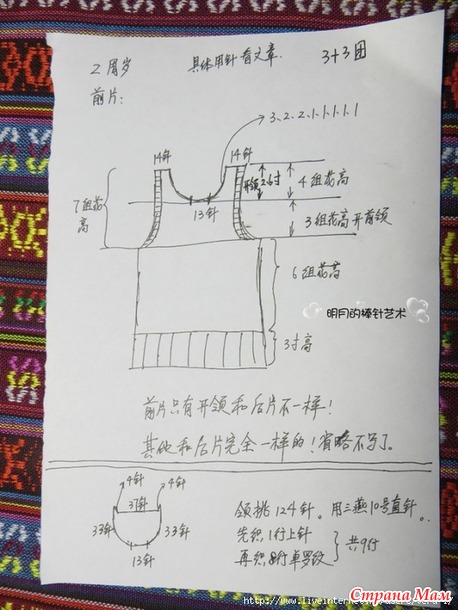 2周岁 具体用针看文章. 3+3团
前片:
3、2、2、1、1、1、1、1
14针 14针
7组花高
开领2.6寸
4组花高
13针
3组花高开前领
6组花高
明月的棒针艺术
3寸高
前片只有开领和后片不一样!
其他和后片完全一样的!省略不写了。
4针 4针
37针
33针 33针
13针
领挑124针。用三燕10号直针。
先织1行上针
再织8行单罗纹
共9行
Страна Мам